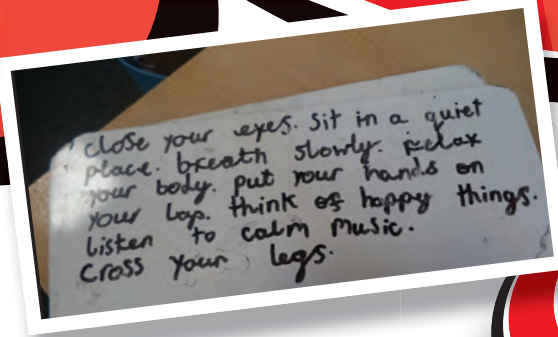 close your eyes. Sit in a quiet
place. breath slowly. Relax
your body. put your hands on
your lap. think of happy things.
listen to calm music.
Cross your legs.